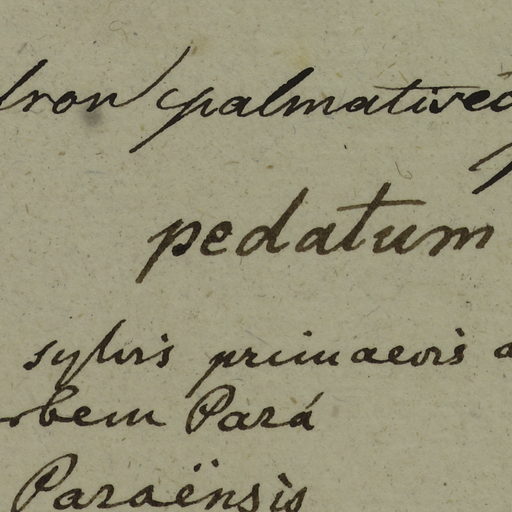 dron palmatised
pedatum
sylvis primaevis a
rbem Pará
Paraënsis